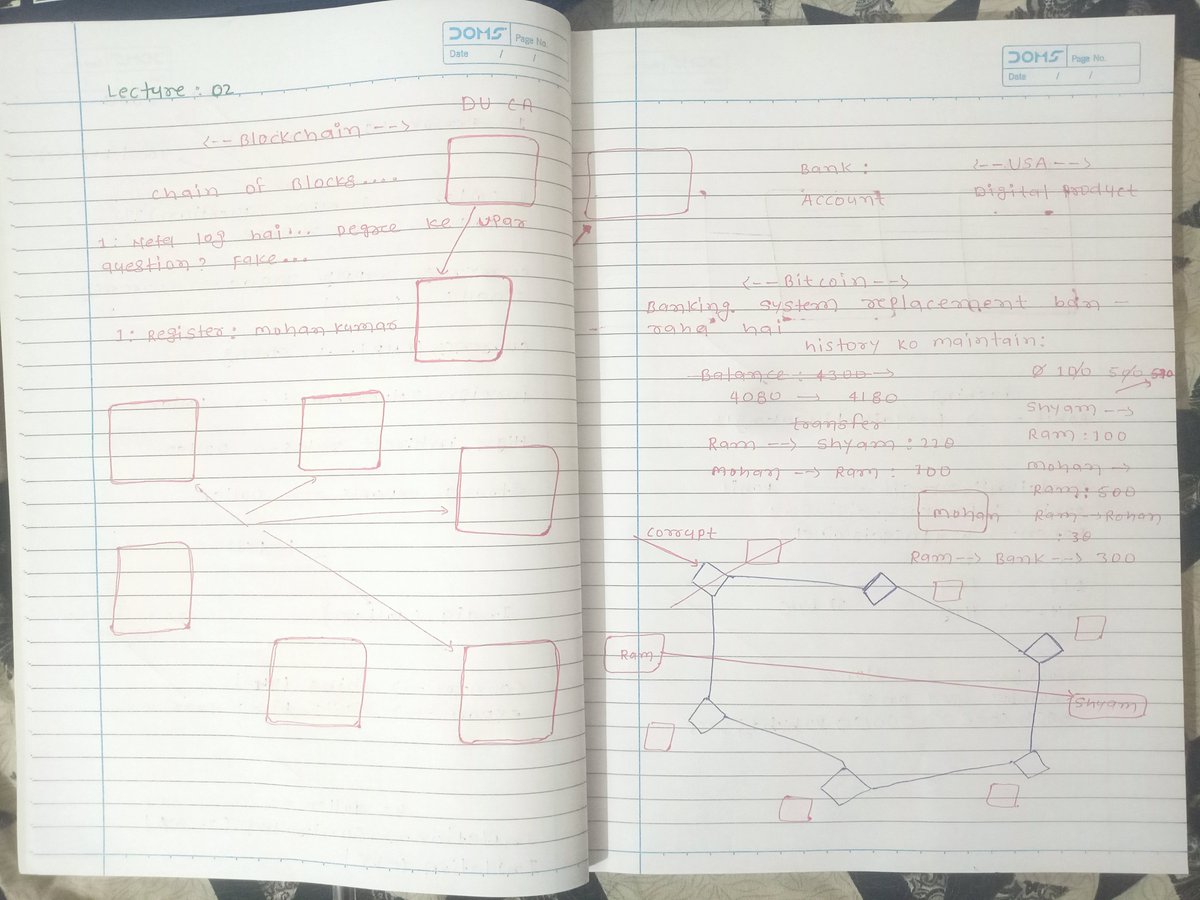 DOMS Page No.
Date / /
Lecture : 02
DU CA
<-- Blockchain -->
Chain of Blocks....
1: Neta log hai... Degree ke upar
question? Fake...
1: Register: Mohan kumar
DOMS Page No.
Date / /
Bank :
Account
<-- USA -->
Digital Product
<-- Bitcoin -->
Banking system replacement ban
raha hai
history ko maintain:
Balance : 4300 →
4080 → 4180
transfer
Ram --> Shyam : 220
Mohan --> Ram : 100
10% 5%
Shyam -->
Ram : 100
Mohan →
Ram : 500
Ram --> Rohan
: 30
Ram --> Bank --> 300
Mohan
Corrupt
Ram
Shyam